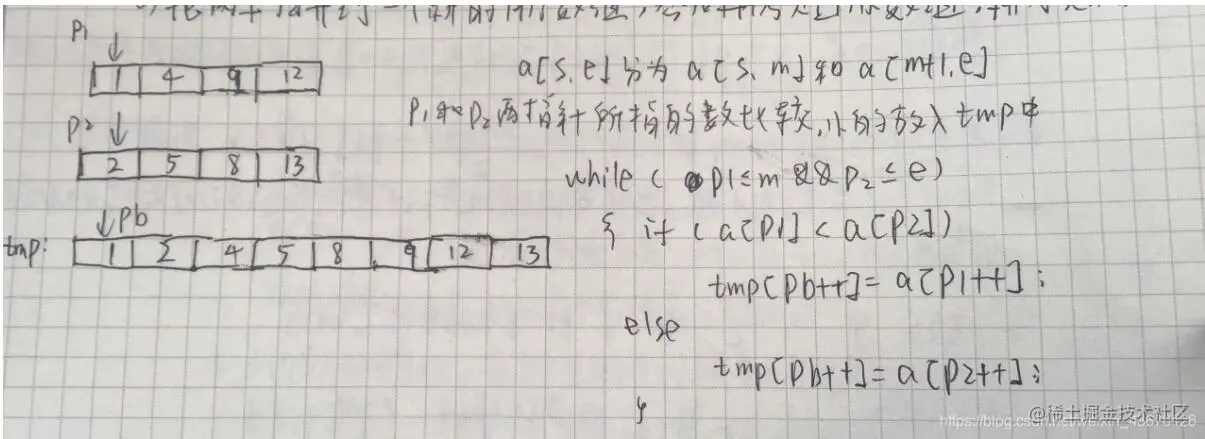 P1
1 4 9 12
a[s,e]分为a[s,m]和a[m+1,e]
P1和P2两指针所指的数比较,小的放入tmp中
P2
2 5 8 13
while ( p1≤m && P2≤e)
Pb
{ if ( a[P1] < a[P2])
tmp: 1 2 4 5 8 9 12 13
tmp[Pb++]= a[P1++];
else
tmp[Pb++]= a[P2++];
}
@稀土掘金技术社区